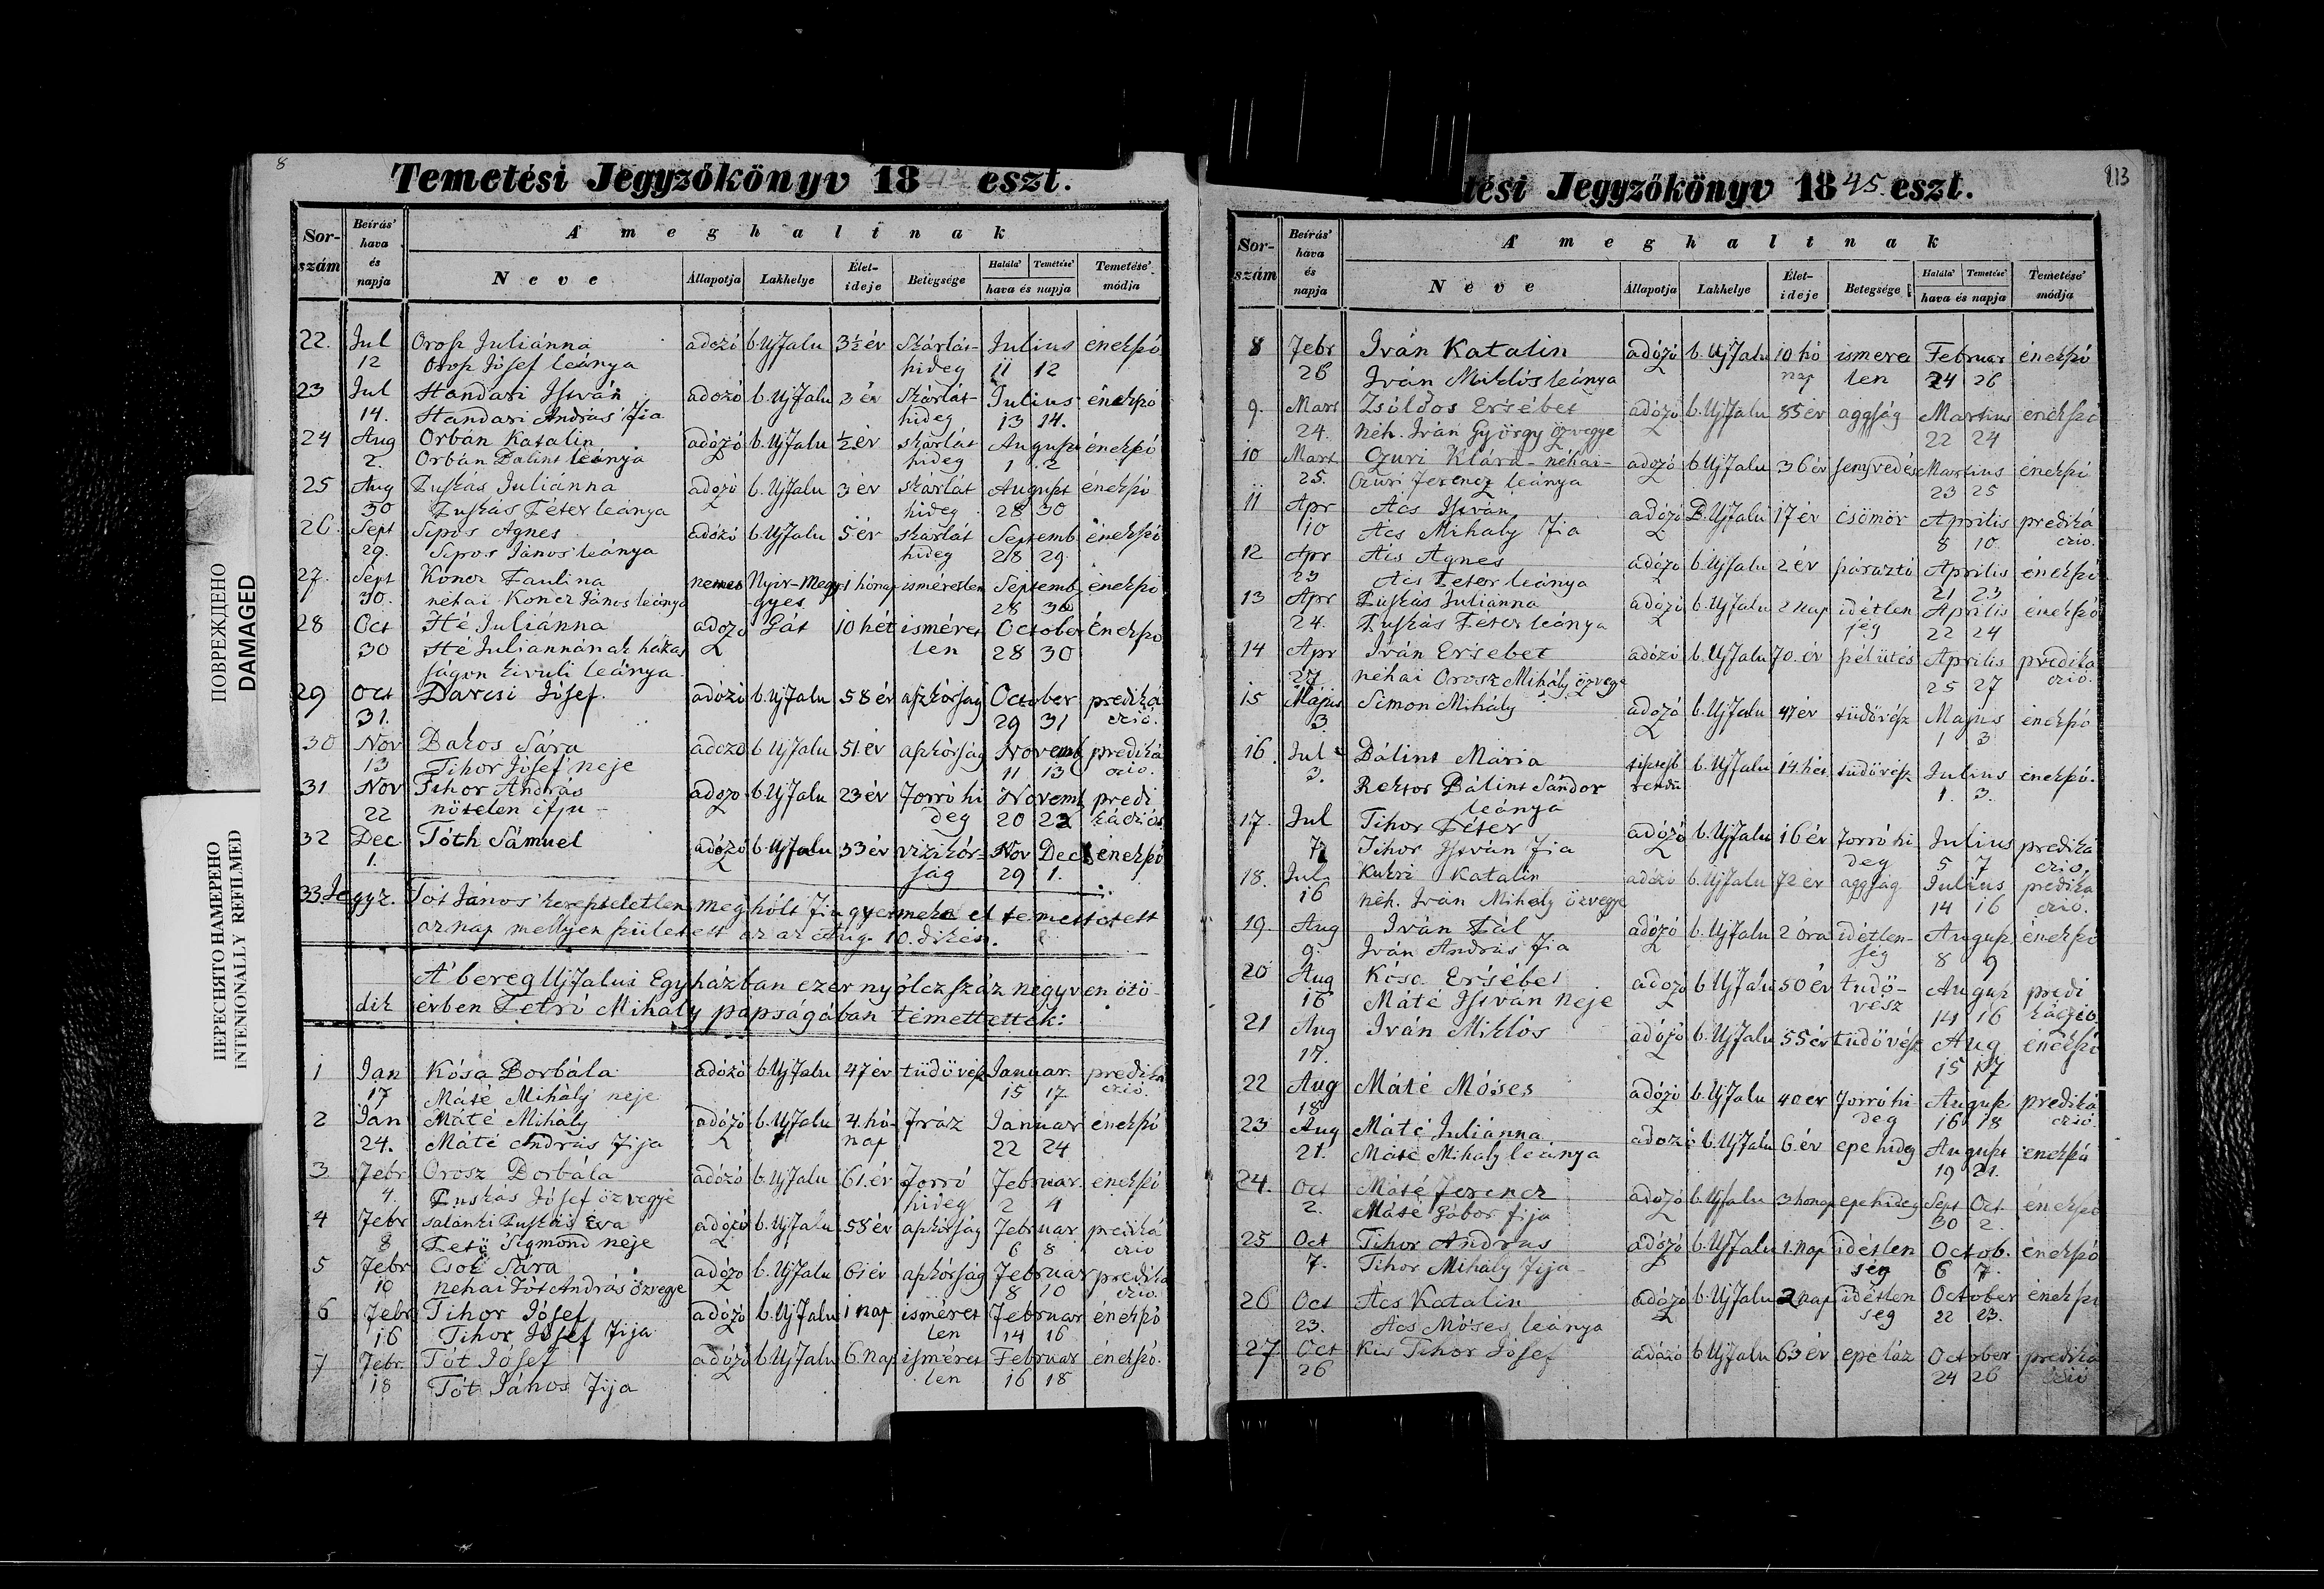 8
Temetési Jegyzőkönyv 18 eszt.
Sor-szám Beírás' hava és napja A' meghaltnak
Neve Állapotja Lakhelye Élet-ideje Betegsége Halála' Temetése' hava és napja Temetése' módja
22. Jul Orosz Juliánna adozó b. Ujfalu 3½ év Skárlát- Julius énekszó
12 Orosz Jósef leánya hideg 11 12
23 Jul Handari István adozó b. Ujfalu 3 év Skárlát- Julius énekszó
14. Handari András fia hideg 13 14.
24 Aug Orbán Katalin adózó b. Ujfalu ½ év skárlát August énekszó
2. Orbán Bálint leánya hideg 1 2
25 Aug Puskás Julianna adozó b. Ujfalu 3 év skarlát August énekszó
30 Puskás Péter leánya hideg 28 30
26. Sept Sipos Agnes adózó b. Ujfalu 5 év skarlát Septemb énekszó
29. Sipos János leánya hideg 28 29.
27. Sept Koncz Paulina nemes Nyir-Megy hónap isméretlen Septemb énekszó
30. néhai Koncz János leánya gyes 28 30
28 Oct Hé Juliánna adozó Gát 10 hét isméret October énekszó
30 Hé Juliannának házas len 28 30
ságon kivuli leánya
29 Oct Darcsi Jósef. adózó b. Ujfalu 58 év aszkórság October prediká
31. 29 31 czio.
30 Nov Bakos Sára adozó b. Ujfalu 51 év aszkórság Novemb prediká
13 Tihor Jósef neje 11 13 czio.
31 Nov Tihor András adozo b. Ujfalu 23 év forró hi Novemb predi
22 nőtelen ifju – deg 20 22 káczió
32 Dec Tóth Sámuel adózó b. Ujfalu 33 év vizikór- Nov Dec énekszó
1. ság 29 1.
33. Jegyz. Tót János' kereszteletlen meghólt fiu gyermeke el temettetett
aznap mellyen született az az Aug. 10. dikén.
A' bereg Ujfalui Egyházban ezer nyólcz száz negyven ötö-
dik évben Petró Mihály papságában temettettek:
1 Jan Kósa Borbála adózó b. Ujfalu 47 év tüdővész Januar prediká
17 Máté Mihály neje 15 17 czió.
2 Jan Máté Mihály adózó b. Ujfalu 4. hó- frász Januar énekszó
24. Máté András fija nap 22 24
3. Febr. Orosz Borbála adózó b. Ujfalu 61. év forró Februar. énekszó
4. Puskás Jósef özvegye hideg 2 4
4 Febr salánki Puskás Éva adózó b. Ujfalu 58 év aszkórság Februar prediká
8 Pető Sigmond neje 6 8 czió
5 Febr. Csok Sára adózó b. Ujfalu 61 év aszkórság Februar prediká
10 néhai Tót András özvegye 8 10 czio.
6 Febr Tihor Jósef adózó b. Ujfalu 1 nap isméret Februar énekszó
16 Tihor Jósef fija len 14 16
7 Febr. Tót Jósef adózó b. Ujfalu 6. nap isméret Februar énekszó.
18 Tót János fija len 16 18
ПОВРЕЖДЕНО
DAMAGED
ПЕРЕСНЯТО НАМЕРЕНО
INTENIONALLY REFILMED
113
tési Jegyzőkönyv 1845. eszt.
Sor-szám Beírás' hava és napja A' meghaltnak
Neve Állapotja Lakhelye Élet-ideje Betegsége Halála' Temetése' hava és napja Temetése' módja
8 Febr Iván Katalin adózó b. Ujfalu 10 hó ismere Februar énekszó
26 Iván Miklós leánya nap tlen 24 26
9. Mart Zsóldos Ersébet adózó b. Ujfalu 85 év aggság Martius enekszó
24. néh. Iván György özvegye 22 24
10 Mart Czuri Klára – néhai – adozó b. Ujfalu 36 év senyvedés Martius énekszó
25. Czuri Ferencz leánya 23 25
11 Apr Ács István adózó B. Ujfalu 17 év csömör Aprilis prediká
10 Ács Mihaly fia 8 10 czio.
12 Apr Ács Agnes adózó b. Ujfalu 2 év szárazló Aprilis énekszó
23 Ács Peter leánya 21 23
13 Apr Puskás Julianna adózó b. Ujfalu 2 nap idétlen Aprilis énekszó
24. Puskás Péter leánya ség 22 24
14 Apr Iván Ersebet adózó b. Ujfalu 70. év szél ütés Aprilis predika
27 néhai Orosz Mihály özvegye 25 27 czió.
15 Május Simon Mihály adózó b. Ujfalu 47 év tüdővész Majus énekszó
3. 1 3
16. Jul Bálint Mária b. Ujfalu 14 hét tüdővész Julius énekszó.
3. Rektor Bálint Sándor rendű 1. 3.
leánya
17. Jul Tihor Péter adózó b. Ujfalu 16 év forró hi Julius prediká
7 Tihor István fia deg 5 7 czio,
18. Jul. Kukri Katalin adózó b. Ujfalu 72 év aggság Julius predika
16 néh. Iván Mihály özvegye 14 16 czió.
19. Aug Iván Pál adózó b. Ujfalu 2 óra idétlen- August énekszó
9. Iván András fia ség 8 9
20 Aug Kósa Ersébet adozó b. Ujfalu 50 év tudő- August predi
16 Máté István neje vész 14 16 káczio
21 Aug Iván Miklós adózó b. Ujfalu 55 év tüdővész Aug énekszó
17. 15 17
22 Aug Máté Móises adózó b. Ujfalu 40 év forró hi August prediká
18 deg 16 18 czió.
23 Aug Máté Juliánna adozó b. Ujfalu 6. év epe hideg August énekszó
21. Máté Mihály leánya 19 21.
24. Oct Máté Ferencz adózó b. Ujfalu 3 honap epe hideg Sept Oct énekszó
2. Máté Gábor fija 30 2.
25 Oct Tihor András adózó b. Ujfalu 1. nap idétlen Octob. énekszó
7. Tihor Mihály fija ség 6 7.
26 Oct Ács Katalin adózó b. Ujfalu 2 nap idétlen October énekszó
23. Ács Móses leánya seg 22 23.
27 Oct Kis Tihor Jósef adózó b. Ujfalu 63 év epe láz October prediká
26 24 26 czió